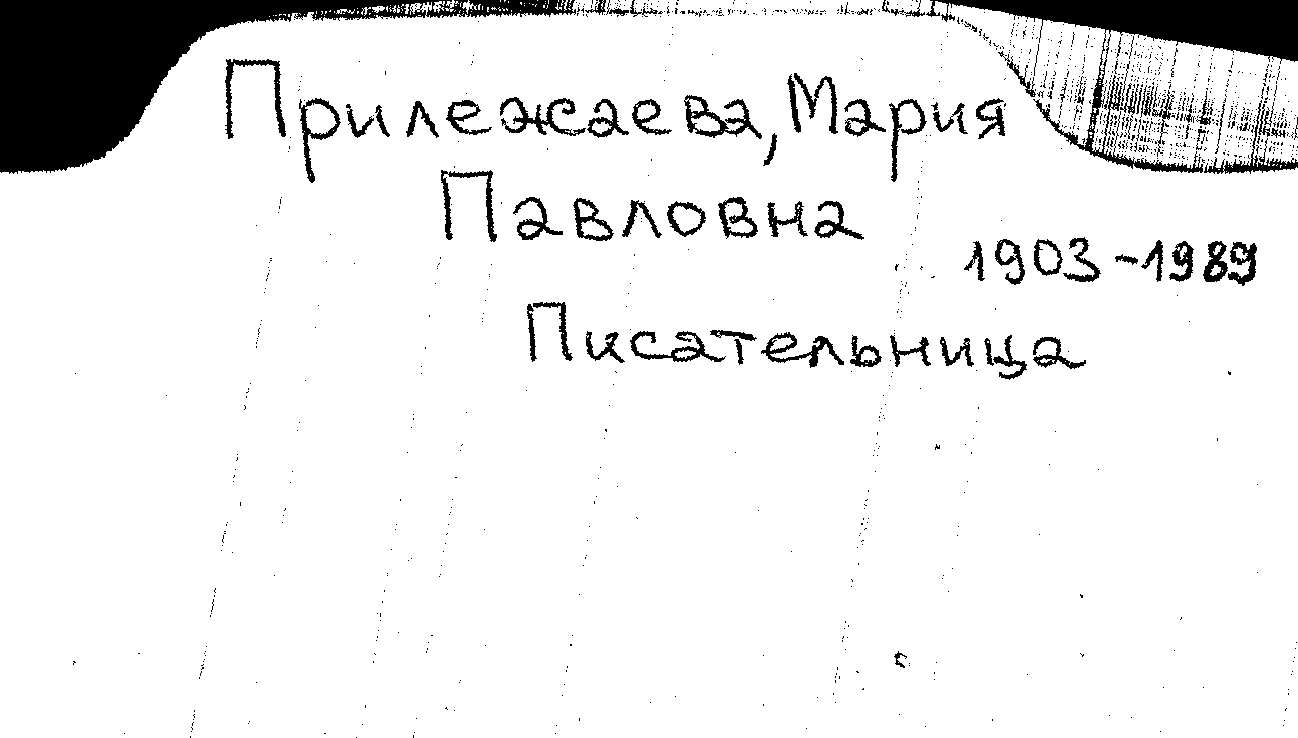 Прилежаева, Мария
Павловна
1903-1989
Писательница